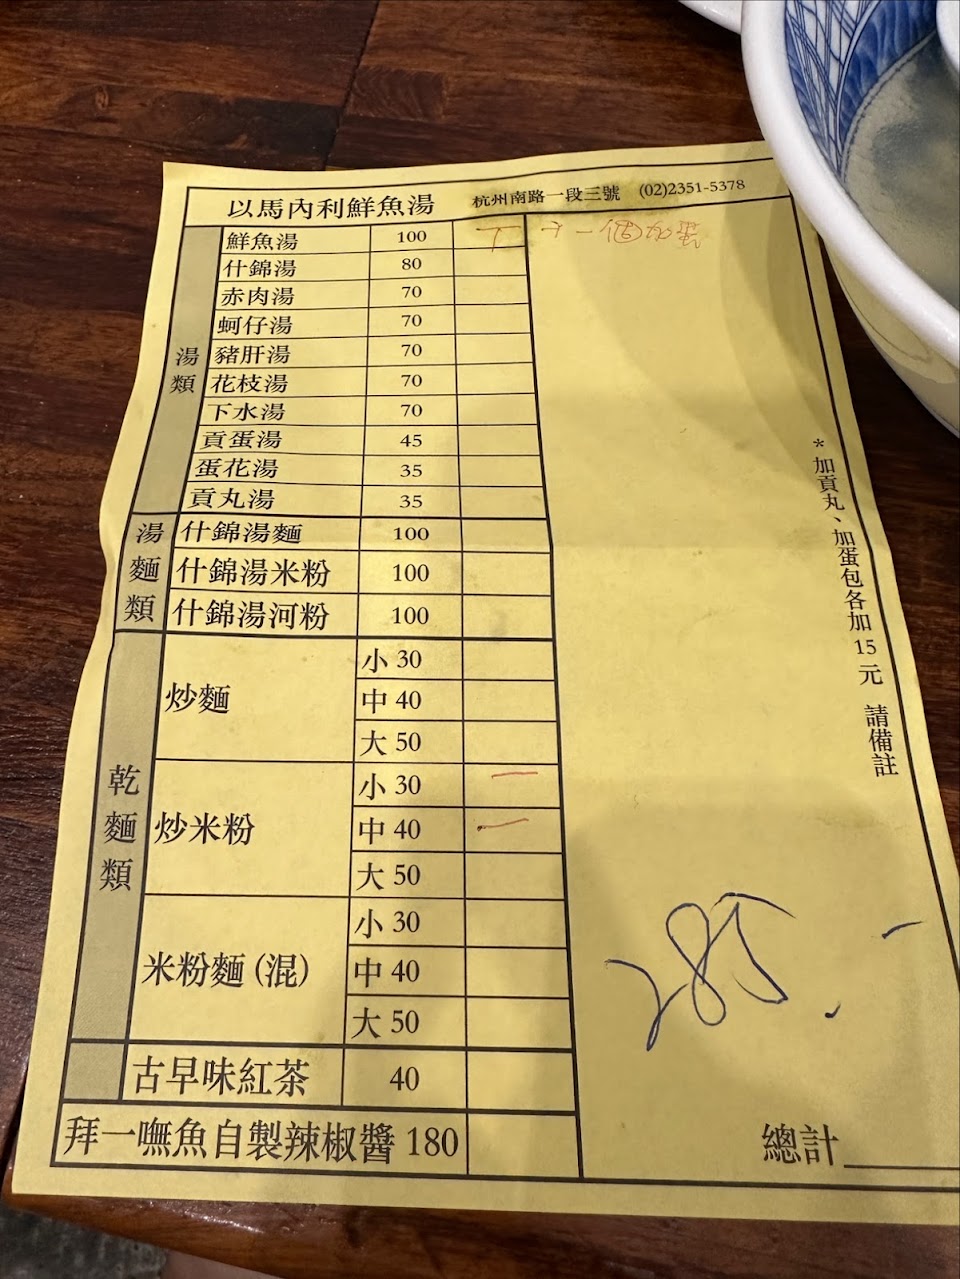 以馬內利鮮魚湯 杭州南路一段三號 (02)2351-5378
湯類
鮮魚湯 100 丅 一個加蛋
什錦湯 80
赤肉湯 70
蚵仔湯 70
豬肝湯 70
花枝湯 70
下水湯 70
貢蛋湯 45
蛋花湯 35
貢丸湯 35
湯麵類
什錦湯麵 100
什錦湯米粉 100
什錦湯河粉 100
乾麵類
炒麵 小 30
中 40
大 50
炒米粉 小 30 一
中 40 一
大 50
米粉麵(混) 小 30
中 40
大 50
古早味紅茶 40
拜一嘸魚自製辣椒醬 180
*加貢丸、加蛋包各加 15 元 請備註
285.-
總計